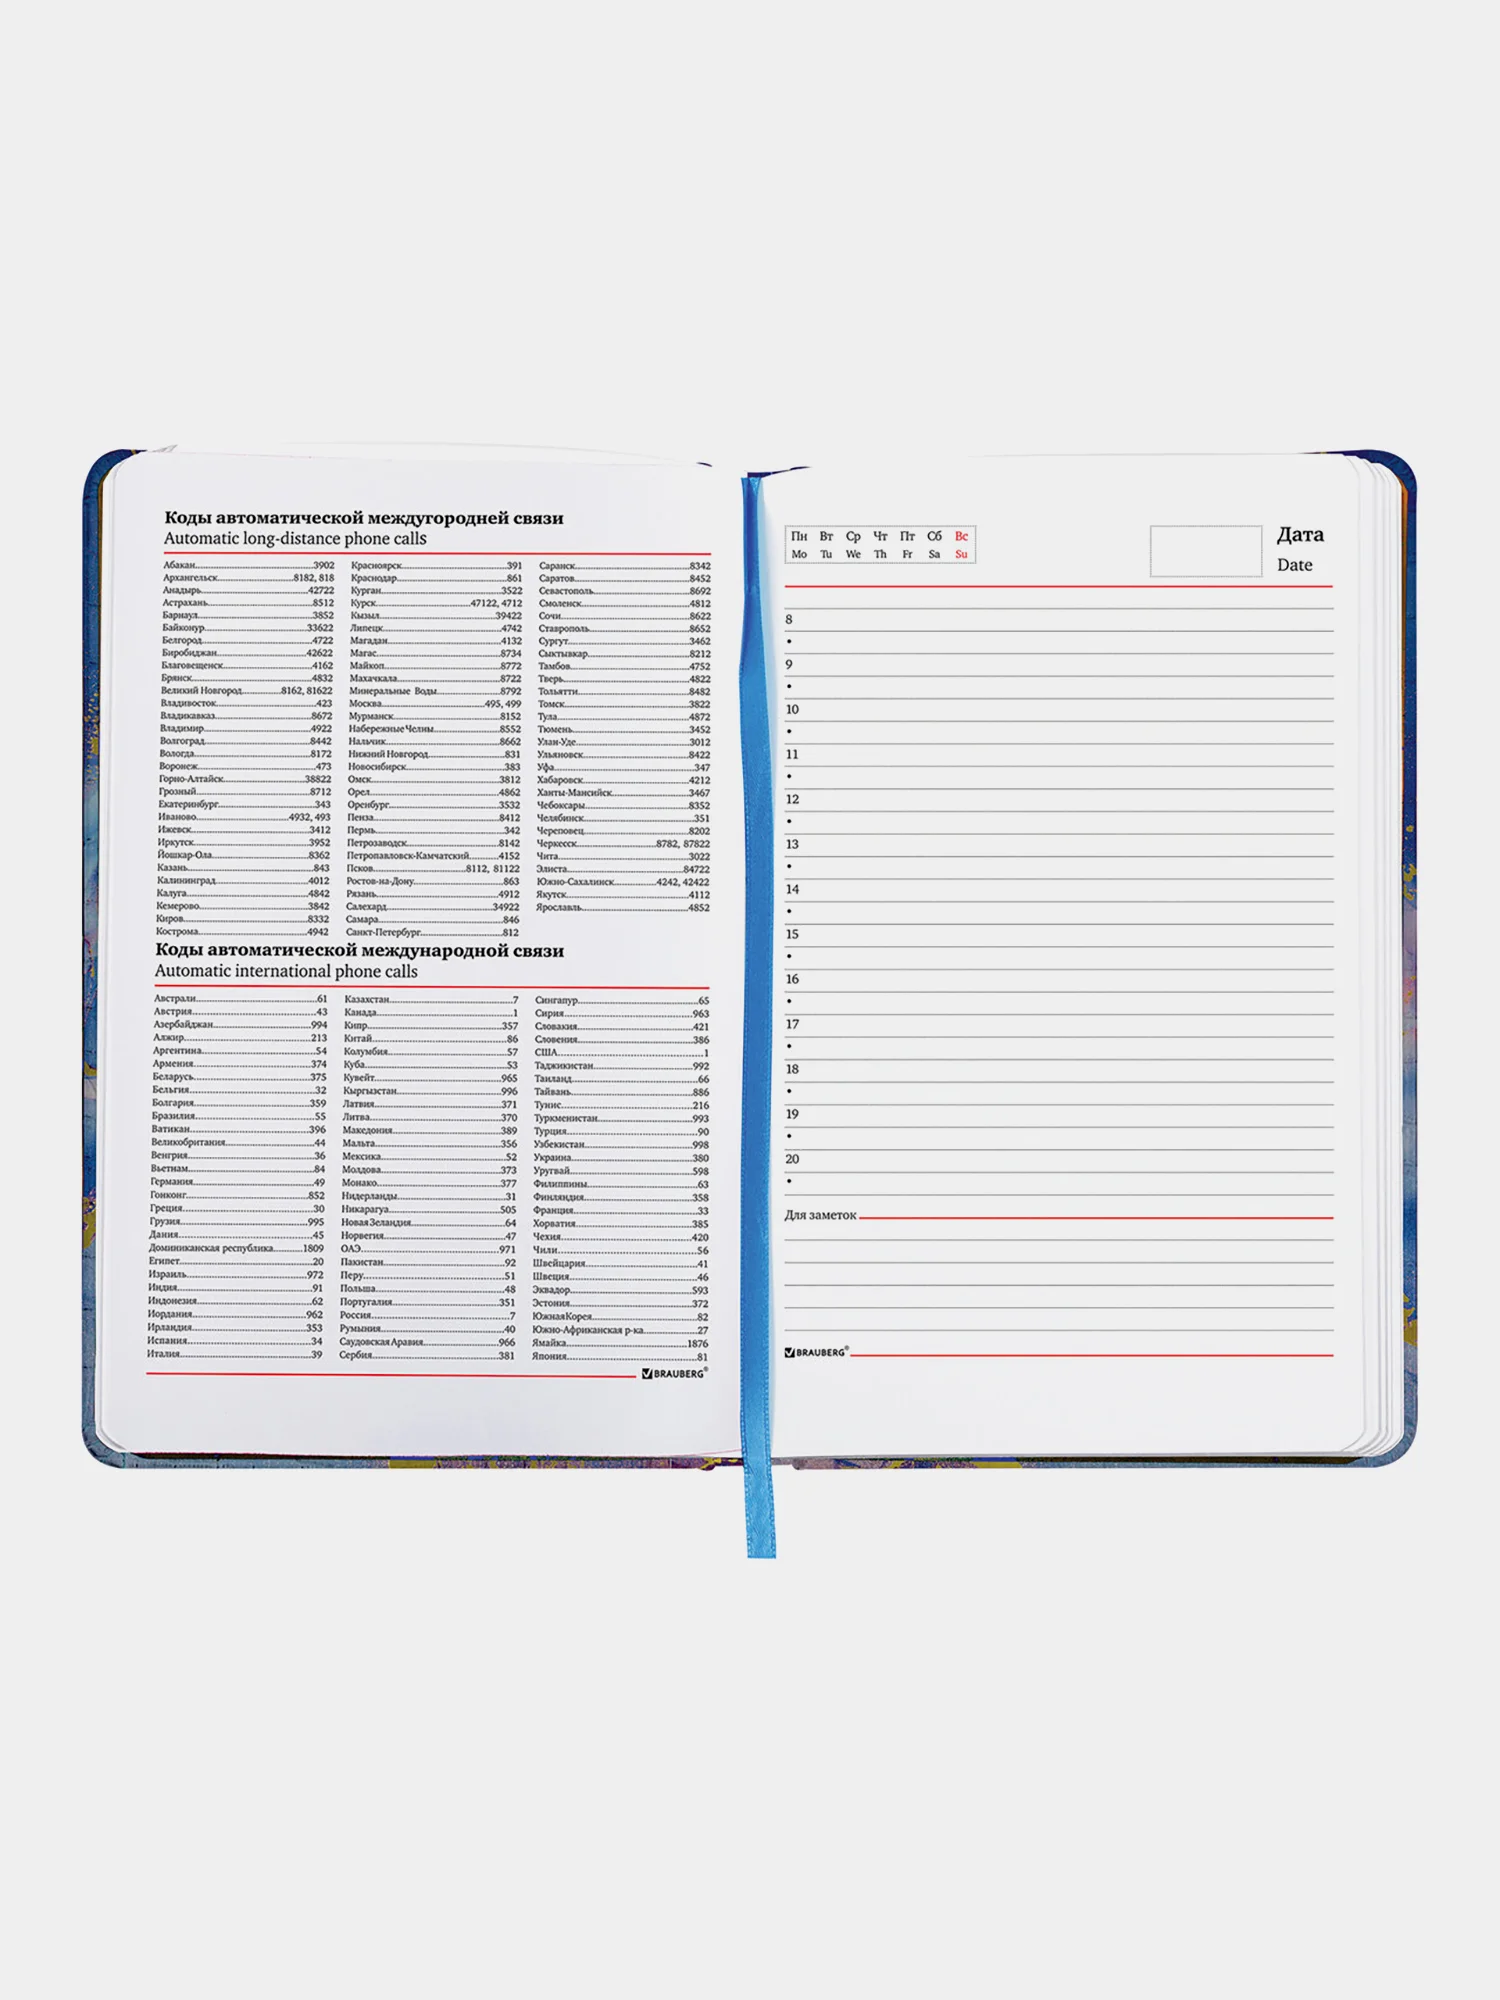 Коды автоматической междугородней связи
Automatic long-distance phone calls
Абакан 3902
Архангельск 8182, 818
Анадырь 42722
Астрахань 8512
Барнаул 3852
Байконур 33622
Белгород 4722
Биробиджан 42622
Благовещенск 4162
Брянск 4832
Великий Новгород 8162, 81622
Владивосток 423
Владикавказ 8672
Владимир 4922
Волгоград 8442
Вологда 8172
Воронеж 473
Горно-Алтайск 38822
Грозный 8712
Екатеринбург 343
Иваново 4932, 493
Ижевск 3412
Иркутск 3952
Йошкар-Ола 8362
Казань 843
Калининград 4012
Калуга 4842
Кемерово 3842
Киров 8332
Кострома 4942
Красноярск 391
Краснодар 861
Курган 3522
Курск 47122, 4712
Кызыл 39422
Липецк 4742
Магадан 4132
Магас 8734
Майкоп 8772
Махачкала 8722
Минеральные Воды 8792
Москва 495, 499
Мурманск 8152
Набережные Челны 8552
Нальчик 8662
Нижний Новгород 831
Новосибирск 383
Омск 3812
Орел 4862
Оренбург 3532
Пенза 8412
Пермь 342
Петрозаводск 8142
Петропавловск-Камчатский 4152
Псков 8112, 81122
Ростов-на-Дону 863
Рязань 4912
Салехард 34922
Самара 846
Санкт-Петербург 812
Саранск 8342
Саратов 8452
Севастополь 8692
Смоленск 4812
Сочи 8622
Ставрополь 8652
Сургут 3462
Сыктывкар 8212
Тамбов 4752
Тверь 4822
Тольятти 8482
Томск 3822
Тула 4872
Тюмень 3452
Улан-Уде 3012
Ульяновск 8422
Уфа 347
Хабаровск 4212
Ханты-Мансийск 3467
Чебоксары 8352
Челябинск 351
Череповец 8202
Черкесск 8782, 87822
Чита 3022
Элиста 84722
Южно-Сахалинск 4242, 42422
Якутск 4112
Ярославль 4852
Коды автоматической международной связи
Automatic international phone calls
Австрали 61
Австрия 43
Азербайджан 994
Алжир 213
Аргентина 54
Армения 374
Беларусь 375
Бельгия 32
Болгария 359
Бразилия 55
Ватикан 396
Великобритания 44
Венгрия 36
Вьетнам 84
Германия 49
Гонконг 852
Греция 30
Грузия 995
Дания 45
Доминиканская республика 1809
Египет 20
Израиль 972
Индия 91
Индонезия 62
Иордания 962
Ирландия 353
Испания 34
Италия 39
Казахстан 7
Канада 1
Кипр 357
Китай 86
Колумбия 57
Куба 53
Кувейт 965
Кыргызстан 996
Латвия 371
Литва 370
Македония 389
Мальта 356
Мексика 52
Молдова 373
Монако 377
Нидерланды 31
Никарагуа 505
Новая Зеландия 64
Норвегия 47
ОАЭ 971
Пакистан 92
Перу 51
Польша 48
Португалия 351
Россия 7
Румыния 40
Саудовская Аравия 966
Сербия 381
Сингапур 65
Сирия 963
Словакия 421
Словения 386
США 1
Таджикистан 992
Таиланд 66
Тайвань 886
Тунис 216
Туркменистан 993
Турция 90
Узбекистан 998
Украина 380
Уругвай 598
Филиппины 63
Финляндия 358
Франция 33
Хорватия 385
Чехия 420
Чили 56
Швейцария 41
Швеция 46
Эквадор 593
Эстония 372
Южная Корея 82
Южно-Африканская р-ка 27
Ямайка 1876
Япония 81
BRAUBERG®
Пн Вт Ср Чт Пт Сб Вс
Mo Tu We Th Fr Sa Su
Дата
Date
8
•
9
•
10
•
11
•
12
•
13
•
14
•
15
•
16
•
17
•
18
•
19
•
20
•
Для заметок
BRAUBERG®